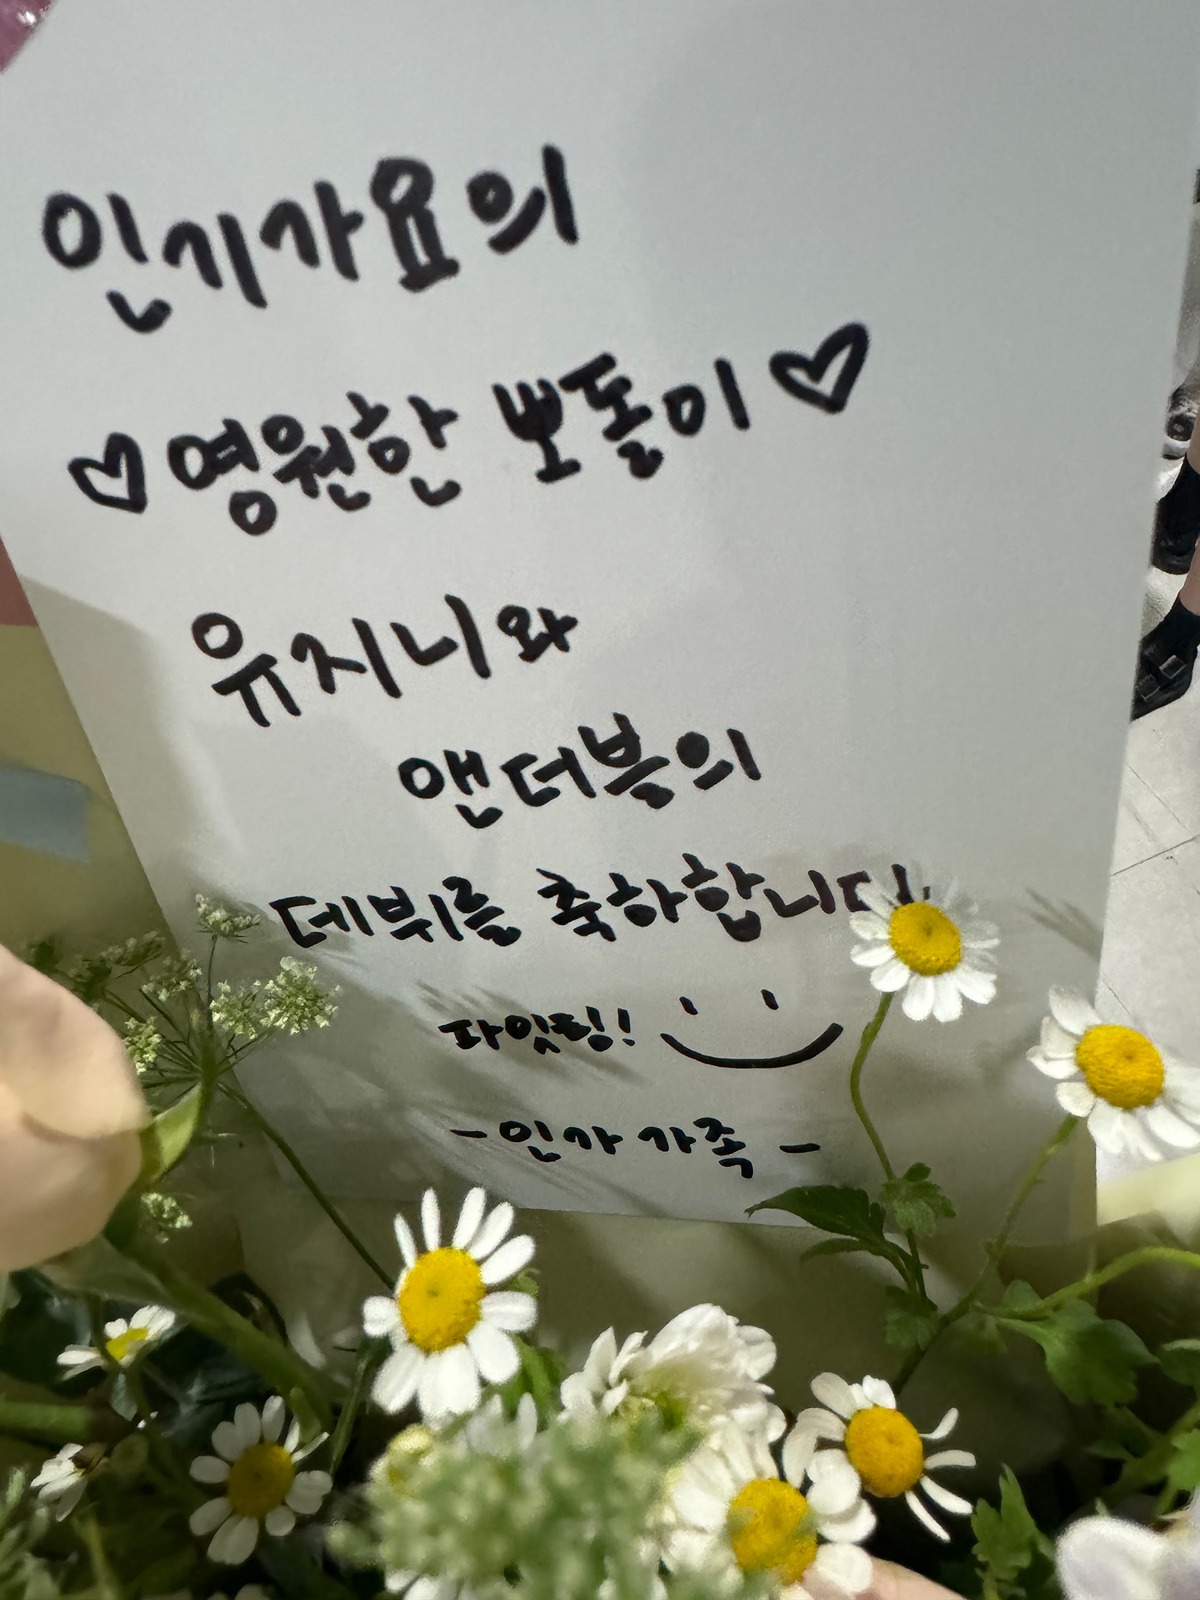 인기가요의
♡영원한 뽀돌이♡
유지니와
앤더블의
데뷔를 축하합니다!
파잇팅!
-인가 가족-